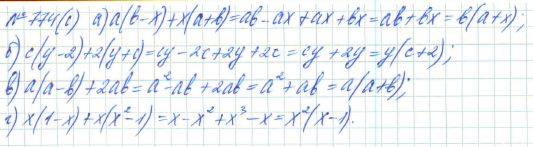 № 774(с) а) a(b-x)+x(a+b)=ab-ax+ax+bx=ab+bx=b(a+x);
б) c(y-2)+2(y+c)=cy-2c+2y+2c=cy+2y=y(c+2);
в) a(a-b)+2ab=a²-ab+2ab=a²+ab=a(a+b);
г) x(1-x)+x(x²-1)=x-x²+x³-x=x²(x-1).